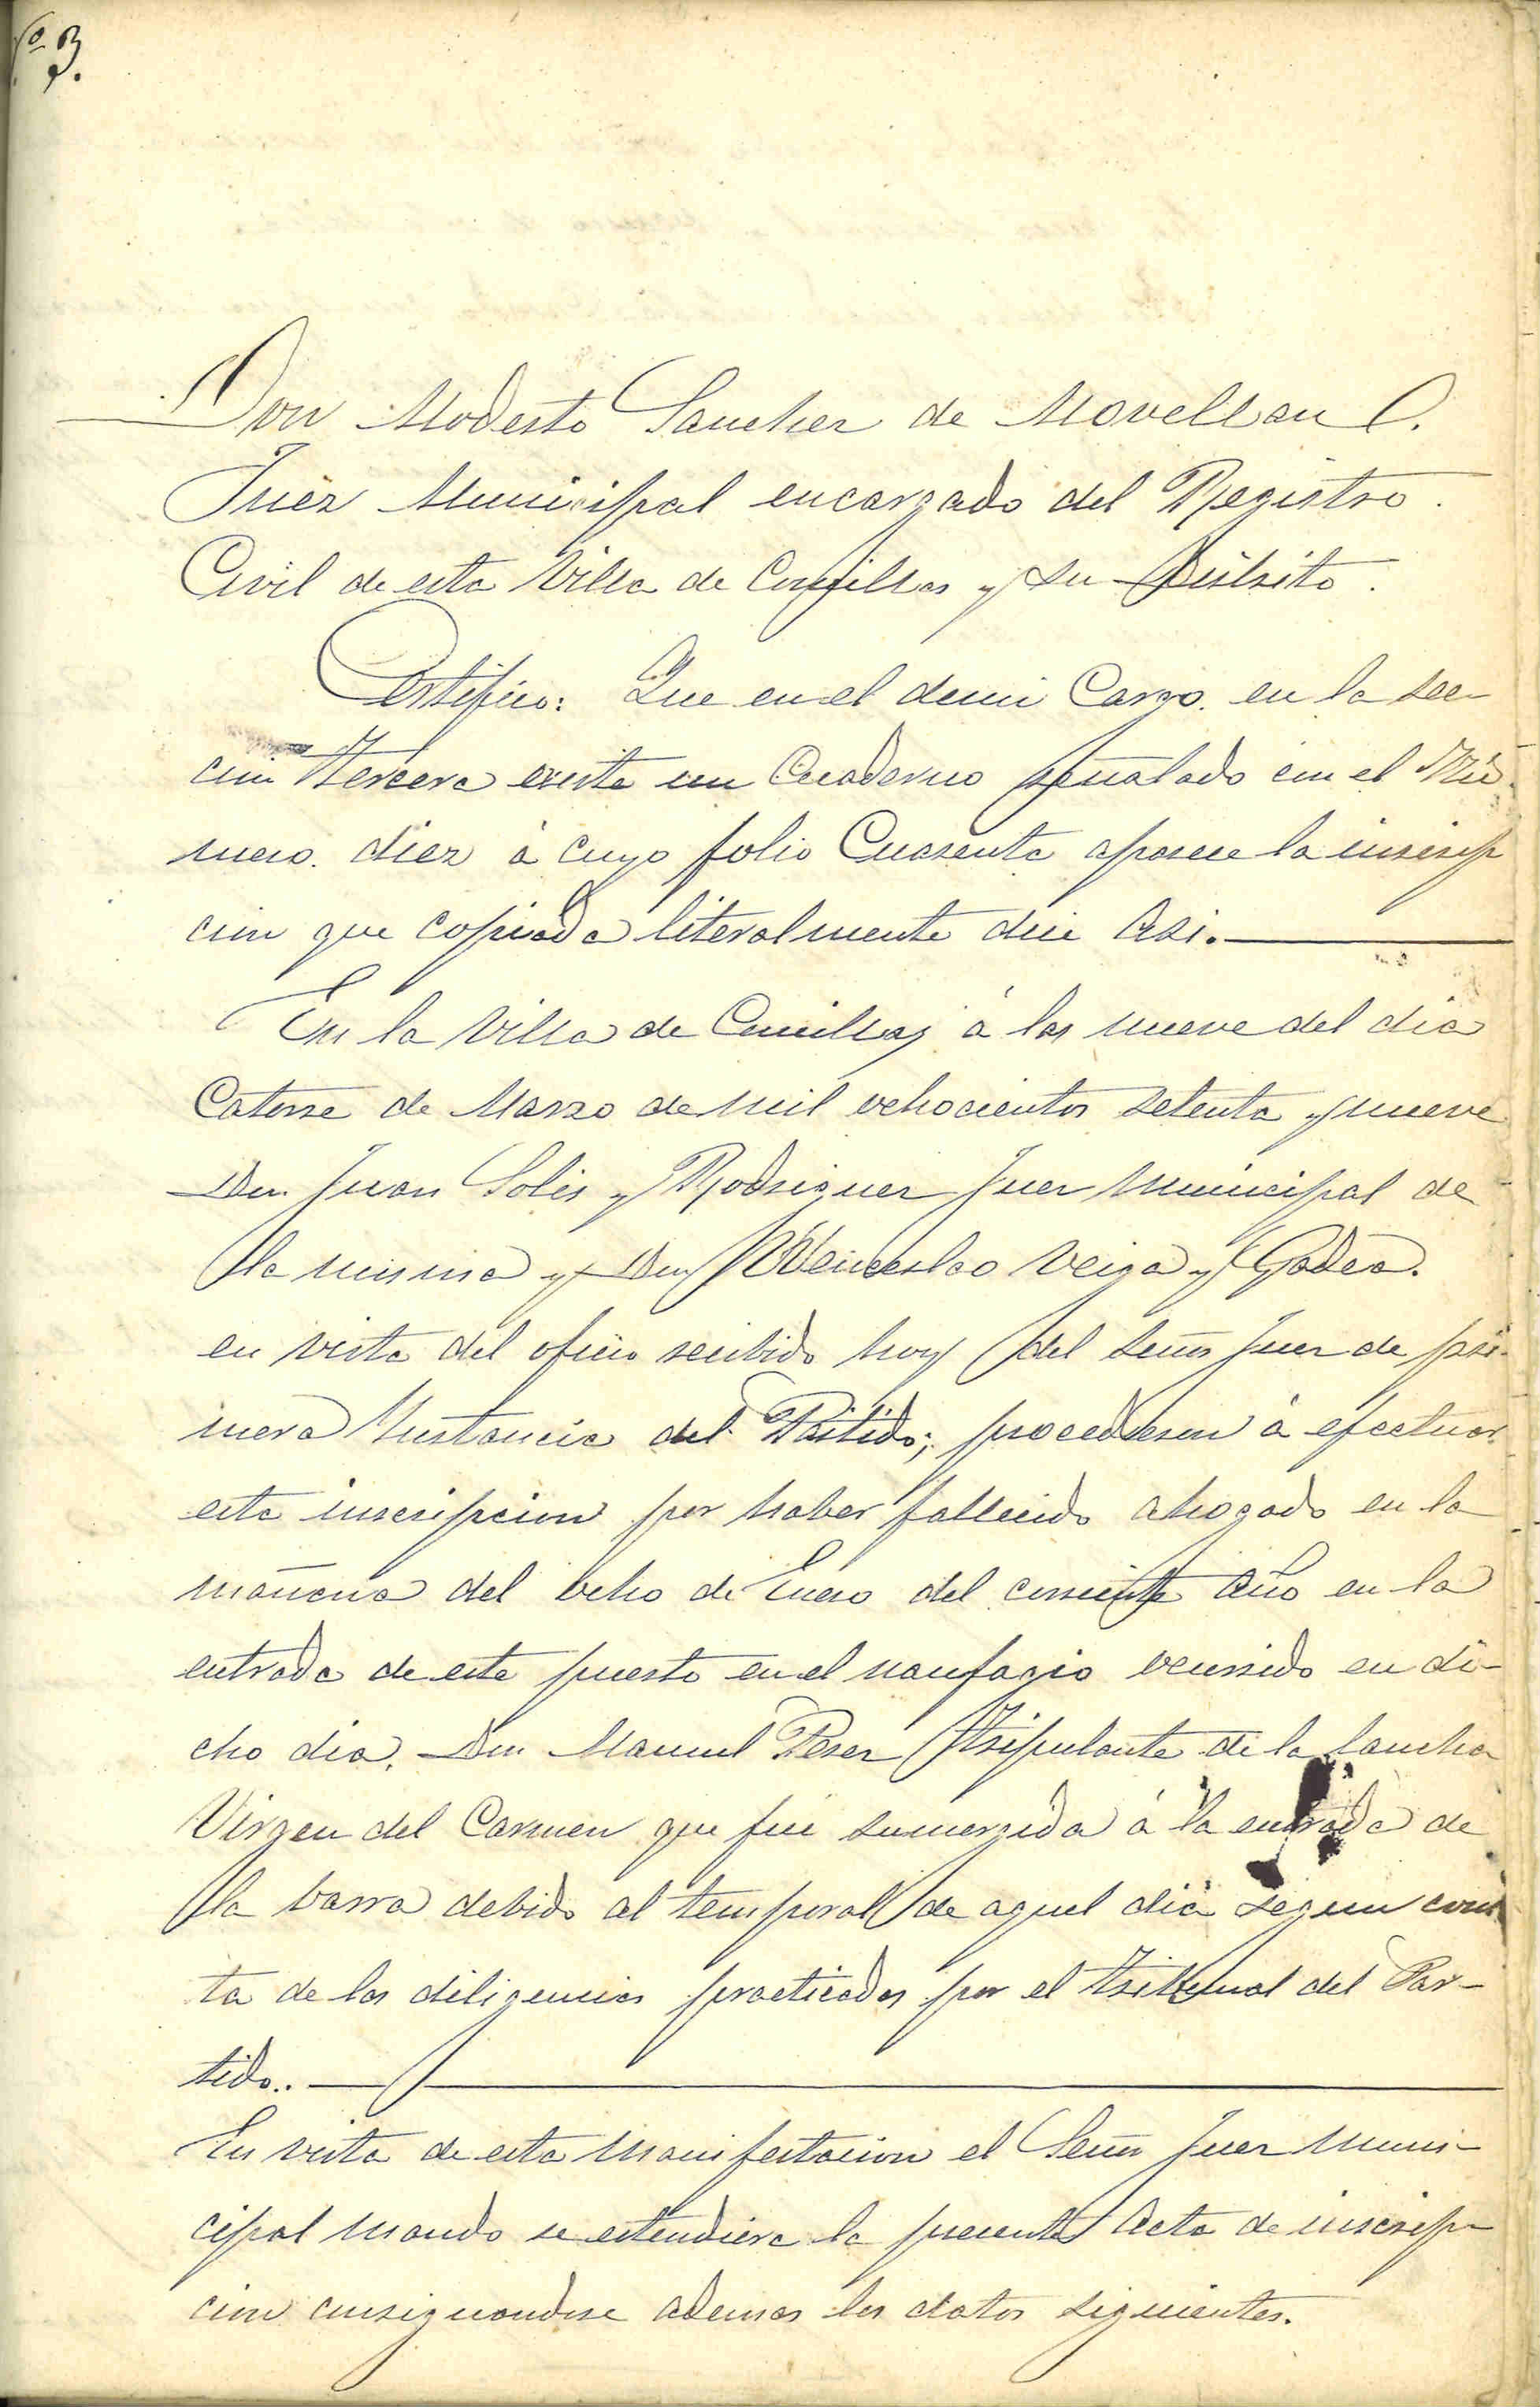 Nº 3.
Don Modesto Sanchez de Movellan C.
Juez Municipal encargado del Registro
Civil de esta Villa de Comillas y su Distrito.
Certifico: Que en el de mi Cargo. en la sec-
cion Tercera existe un Cuaderno señalado con el Nú-
mero. diez á cuyo folio Cuarenta aparece la inscrip
cion que copiada literalmente dice Asi.
En la Villa de Comillas á las nueve del dia
Catorze de Marzo de mil ochocientos setenta y nueve
Don Juan Solis y Rodriguez Juez Municipal de
la misma y Don Wenceslao Veiga y Gadea.
en vista del oficio recibido hoy del Señor Juez de pri-
mera Instancia del Partido; procedieron á efectuar
esta inscripcion por haber fallecido ahogado en la
mañana del ocho de Enero del corriente Año en la
entrada de este puerto en el naufagio ocurrido en di-
cho dia, Don Manuel Perez Tripulante de la lancha
Virgen del Carmen que fue sumergida á la entrada de
la barra debido al temporal de aquel dia segun cons
ta de las diligencias practicadas por el Tribunal del Par-
tido..
En vista de esta Manifestacion el Señor Juez Muni-
cipal mando se estendiera la presente Acta de inscrip-
cion consignandose ademas los datos siguientes.